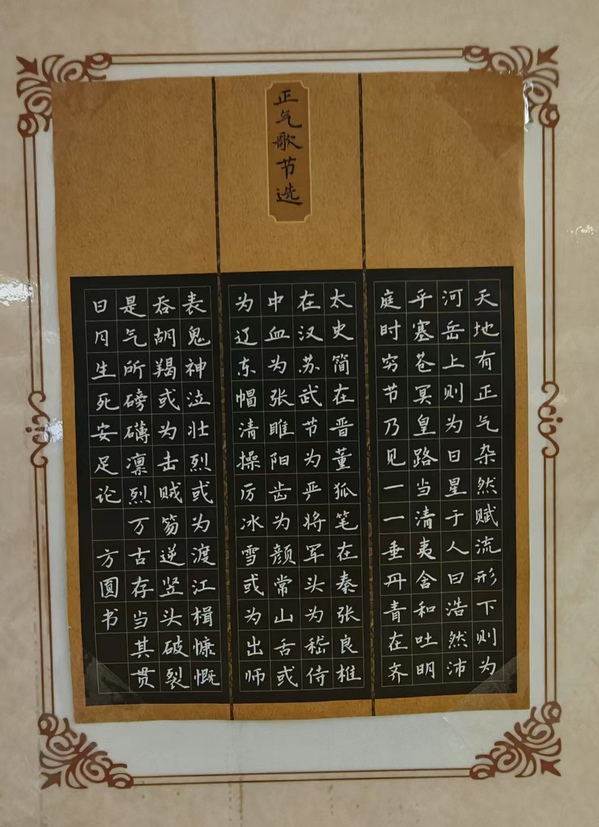 正气歌节选
天地有正气杂然赋流形下则为
河岳上则为日星于人曰浩然沛
乎塞苍冥皇路当清夷含和吐明
庭时穷节乃见一一垂丹青在齐
太史简在晋董狐笔在秦张良椎
在汉苏武节为严将军头为嵇侍
中血为张睢阳齿为颜常山舌或
为辽东帽清操厉冰雪或为出师
表鬼神泣壮烈或为渡江楫慷慨
吞胡羯或为击贼笏逆竖头破裂
是气所磅礴凛烈万古存当其贯
日月生死安足论 方圆书